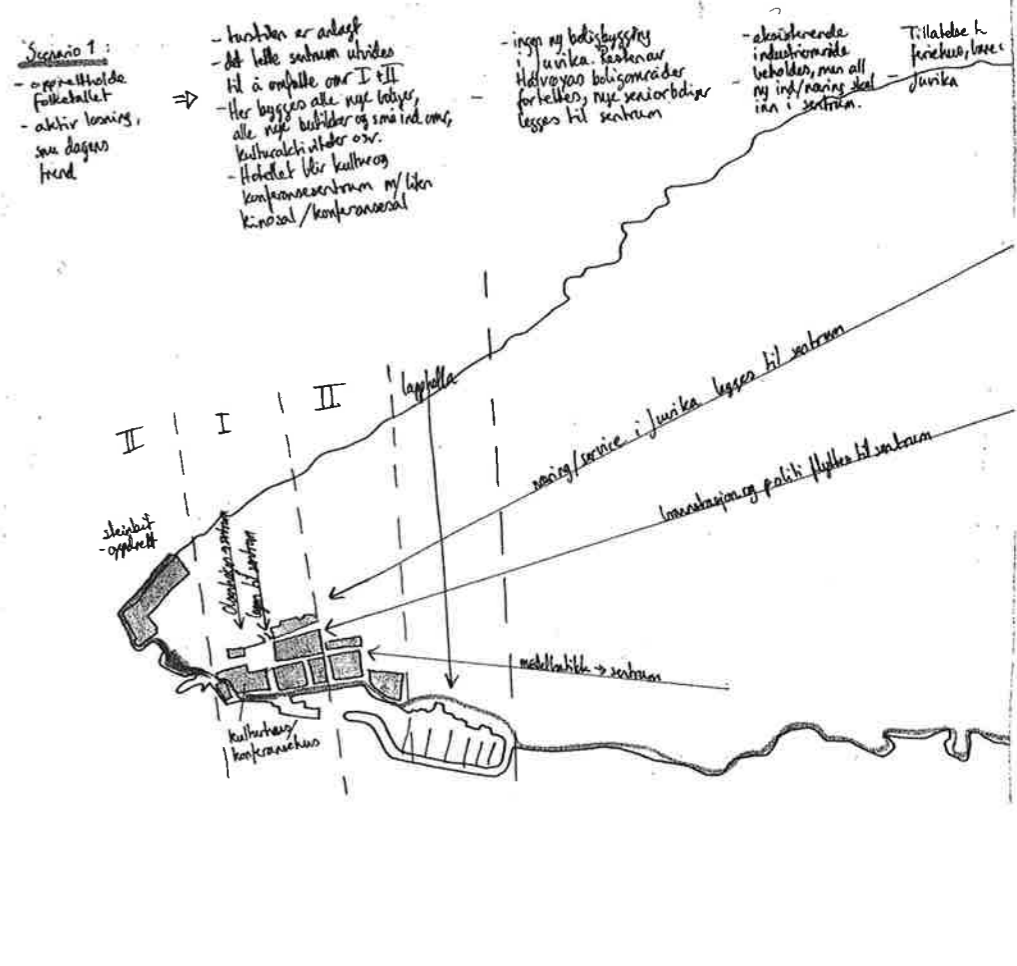 Scenario 1:
- opprettholde
folketallet
- aktiv løsning,
snu dagens
trend
⇒
- turstien er anlagt
- det tette sentrum utvides
til å omfatte omr I + II
- Her bygges alle nye boliger,
alle nye butikker og små ind. omr,
kulturaktiviteter osv.
- Hotellet blir kultur og
konferansesentrum m/liten
kinosal/konferansesal
- ingen ny boligbygging
i Juvika. Resten av
Halvøyas boligområder
fortettes, nye seniorboliger
legges til sentrum
- eksisterende
industriområde
beholdes, men all
- ny ind/næring skal
inn i sentrum.
Tillatelse t
feriehus,
- Juvika
II
I
II
lapphella
næring/service i Juvika legges til sentrum
brannstasjon og politi flyttes til sentrum
steinbit
-oppdrett
→ sentrum
legen til sentrum
møbelbutikk → sentrum
kulturhus/
konferansehus